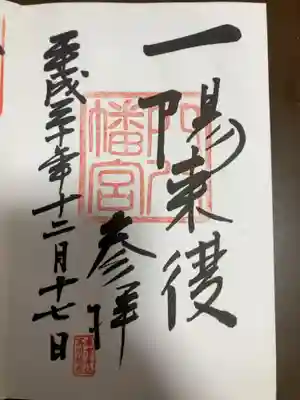 一陽来復
穴八幡宮
参拝
平成三十年十二月十七日